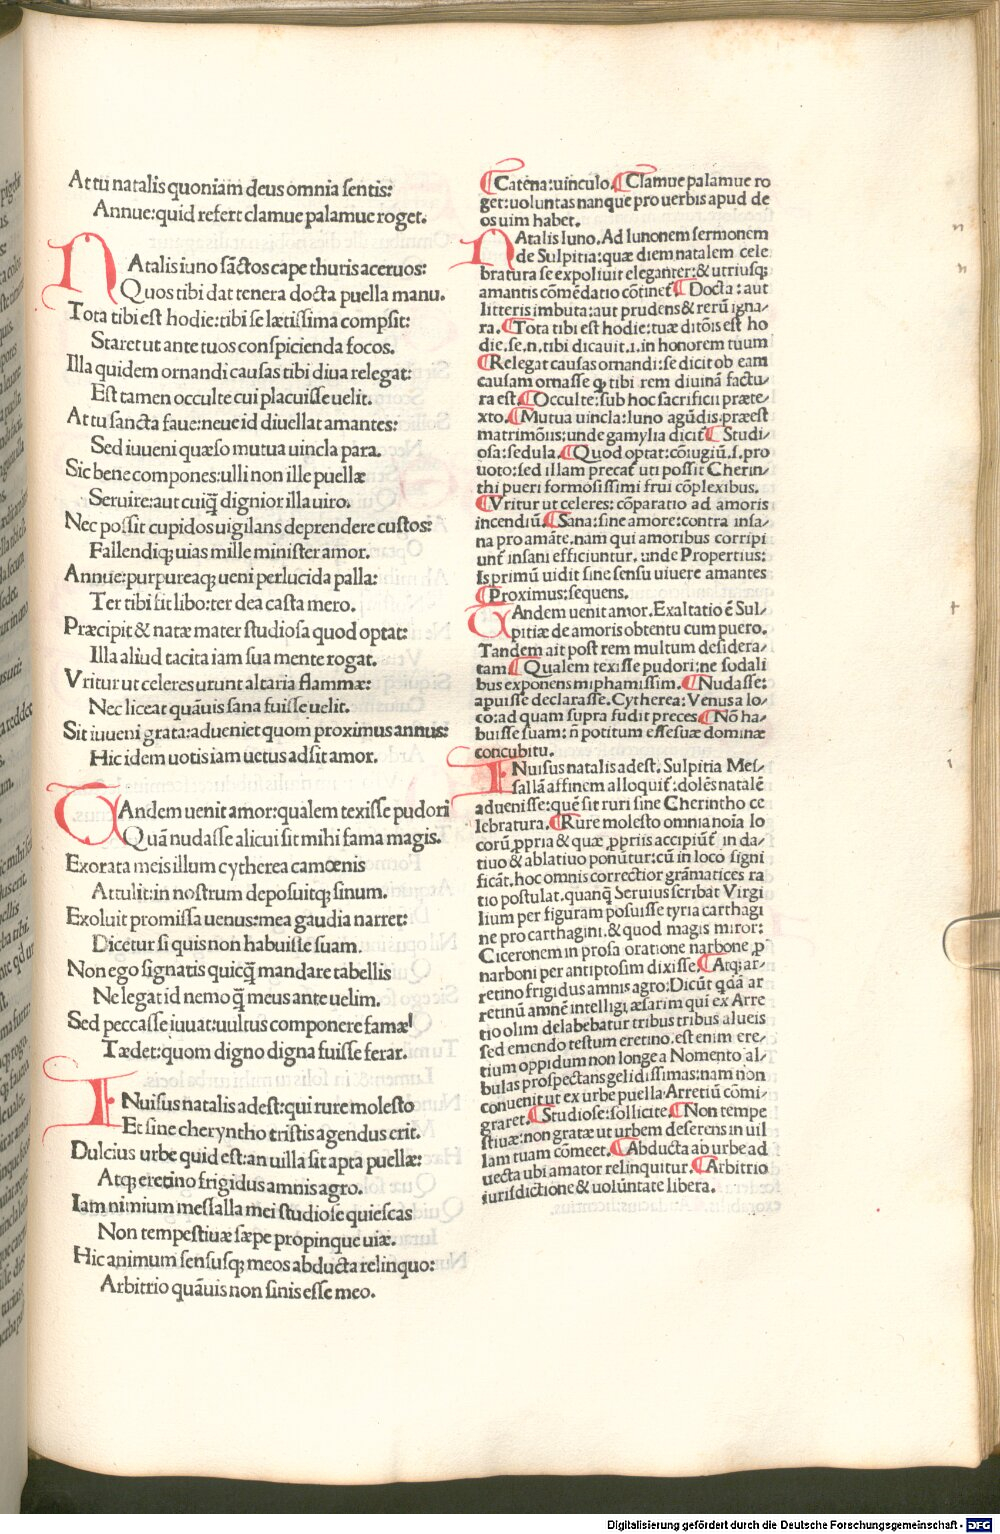 At tu natalis quoniam deus omnia sentis:
Annue: quid refert clamue palamue roget.
NAtalis iuno sāctos cape thuris aceruos:
Quos tibi dat tenera docta puella manu.
Tota tibi est hodie: tibi se lætissima compsit:
Staret ut ante tuos conspicienda focos.
Illa quidem ornandi causas tibi diua relegat:
Est tamen occulte cui placuisse uelit.
At tu sancta faue: neue id diuellat amantes:
Sed iuueni quæso mutua uincla para.
Sic bene compones: ulli non ille puellæ
Seruire: aut cuiq̄ dignior illa uiro.
Nec possit cupidos uigilans deprendere custos:
Fallendiq; uias mille minister amor.
Annue: purpureaq; ueni perlucida palla:
Ter tibi fit libo: ter dea casta mero.
Præcipit & natæ mater studiosa quod optat:
Illa aliud tacita iam sua mente rogat.
Vritur ut celeres urunt altaria flammæ:
Nec liceat quāuis sana fuisse uelit.
Sit iuueni grata: adueniet quom proximus annus:
Hic idem uotis iam uetus adsit amor.
TAndem uenit amor: qualem texisse pudori
Quā nudasse alicui sit mihi fama magis.
Exorata meis illum cytherea camœnis
Attulit: in nostrum deposuitq; sinum.
Exoluit promissa uenus: mea gaudia narret:
Dicetur si quis non habuisse suam.
Non ego signatis quicq̄ mandare tabellis
Ne legat id nemo q̄ meus ante uelim.
Sed peccasse iuuat: uultus componere famæ
Tædet: quom digno digna fuisse ferar.
INuisus natalis adest: qui rure molesto
Et sine cheryntho tristis agendus erit.
Dulcius urbe quid est: an uilla sit apta puellæ:
Atq; eretino frigidus amnis agro.
Iam nimium messalla mei studiose quiescas
Non tempestiuæ sæpe propinque uiæ.
Hic animum sensusq; meos abducta relinquo:
Arbitrio quāuis non sinis esse meo.
¶Catena: uinculo. ¶Clamue palamue ro
get: uoluntas nanque pro uerbis apud de
os uim habet.
NAtalis Iuno. Ad Iunonem sermonem
de Sulpitia: quæ diem natalem cele
bratura se expoliuit eleganter: & utriusq;
amantis cōmēdatio cōtinet̄ ¶Docta: aut
litteris imbuta: aut prudens & rerū igna/
ra. ¶Tota tibi est hodie: tuæ ditōis est ho
die. se. n. tibi dicauit. i. in honorem tuum
¶Relegat causas ornandi: se dicit ob eam
causam ornasse ꝙ tibi rem diuinā factu/
ra est. ¶Occulte: sub hoc sacrificii præte/
xto. ¶Mutua uincla: Iuno agūdis præest
matrimōiis: unde gamylia dicit̄ ¶Studi/
osa: sedula. ¶Quod optat: cōiugiū. s. pro
uoto: sed illam precat̄ uti possit Cherin/
thi pueri formosissimi frui cōplexibus.
¶Vritur ut celeres: cōparatio ad amoris
incendiū. ¶Sana: sine amore: contra insa/
na pro amāte. nam qui amoribus corripi
unt̄ insani efficiuntur. unde Propertius:
Is primū uidit sine sensu uiuere amantes
¶Proximus: sequens.
TAndem uenit amor. Exaltatio ē Sul/
pitiæ de amoris obtentu cum puero.
Tandem ait post rem multum desidera/
tam. ¶Qualem texisse pudori: ne sodali
bus exponens miphamissim. ¶Nudasse:
apuisse declarasse. Cytherea: Venus a lo/
co: ad quam supra fudit preces. ¶Nō ha/
buisse suam: n̄ potitum esse suæ dominæ
concubitu.
INuisus natalis adest. Sulpitia Mes/
sallā affinem alloquit̄: dolēs natalē
aduenisse: quē sit ruri sine Cherintho ce
lebratura. ¶Rure molesto omnia noīa lo
corū ꝓpria & quæ ꝓpriis accipiūt̄ in da/
tiuo & ablatiuo ponūtur: cū in loco signi
ficāt. hoc omnis correctior grāmatices ra
tio postulat. quanq̄ Seruius scribat Virgi
lium per figuram posuisse tyria carthagi
ne pro carthagini. & quod magis miror:
Ciceronem in prosa oratione narbone ꝓ
narboni per antiptosim dixisse. ¶Atq; ar/
retino frigidus amnis agro: Dicūt quā ar
retinū amnē intelligi, æsarim qui ex Arre
tio olim delabebatur tribus tribus alueis
sed emendo testum eretino. est enim ere/
tium oppidum non longe a Nomento al/
bulas prospectans gelidissimas: nam non
conuenit ut ex urbe puella Arretiū cōmi/
graret. ¶Studiose: sollicite. ¶Non tempe
stiuæ: non gratæ ut urbem deserens in uil
lam tuam cōmeet. ¶Abducta ab urbe ad
uecta ubi amator relinquitur. ¶Arbitrio
iurisdictione & uolūntate libera.
Digitalisierung gefördert durch die Deutsche Forschungsgemeinschaft - DFG